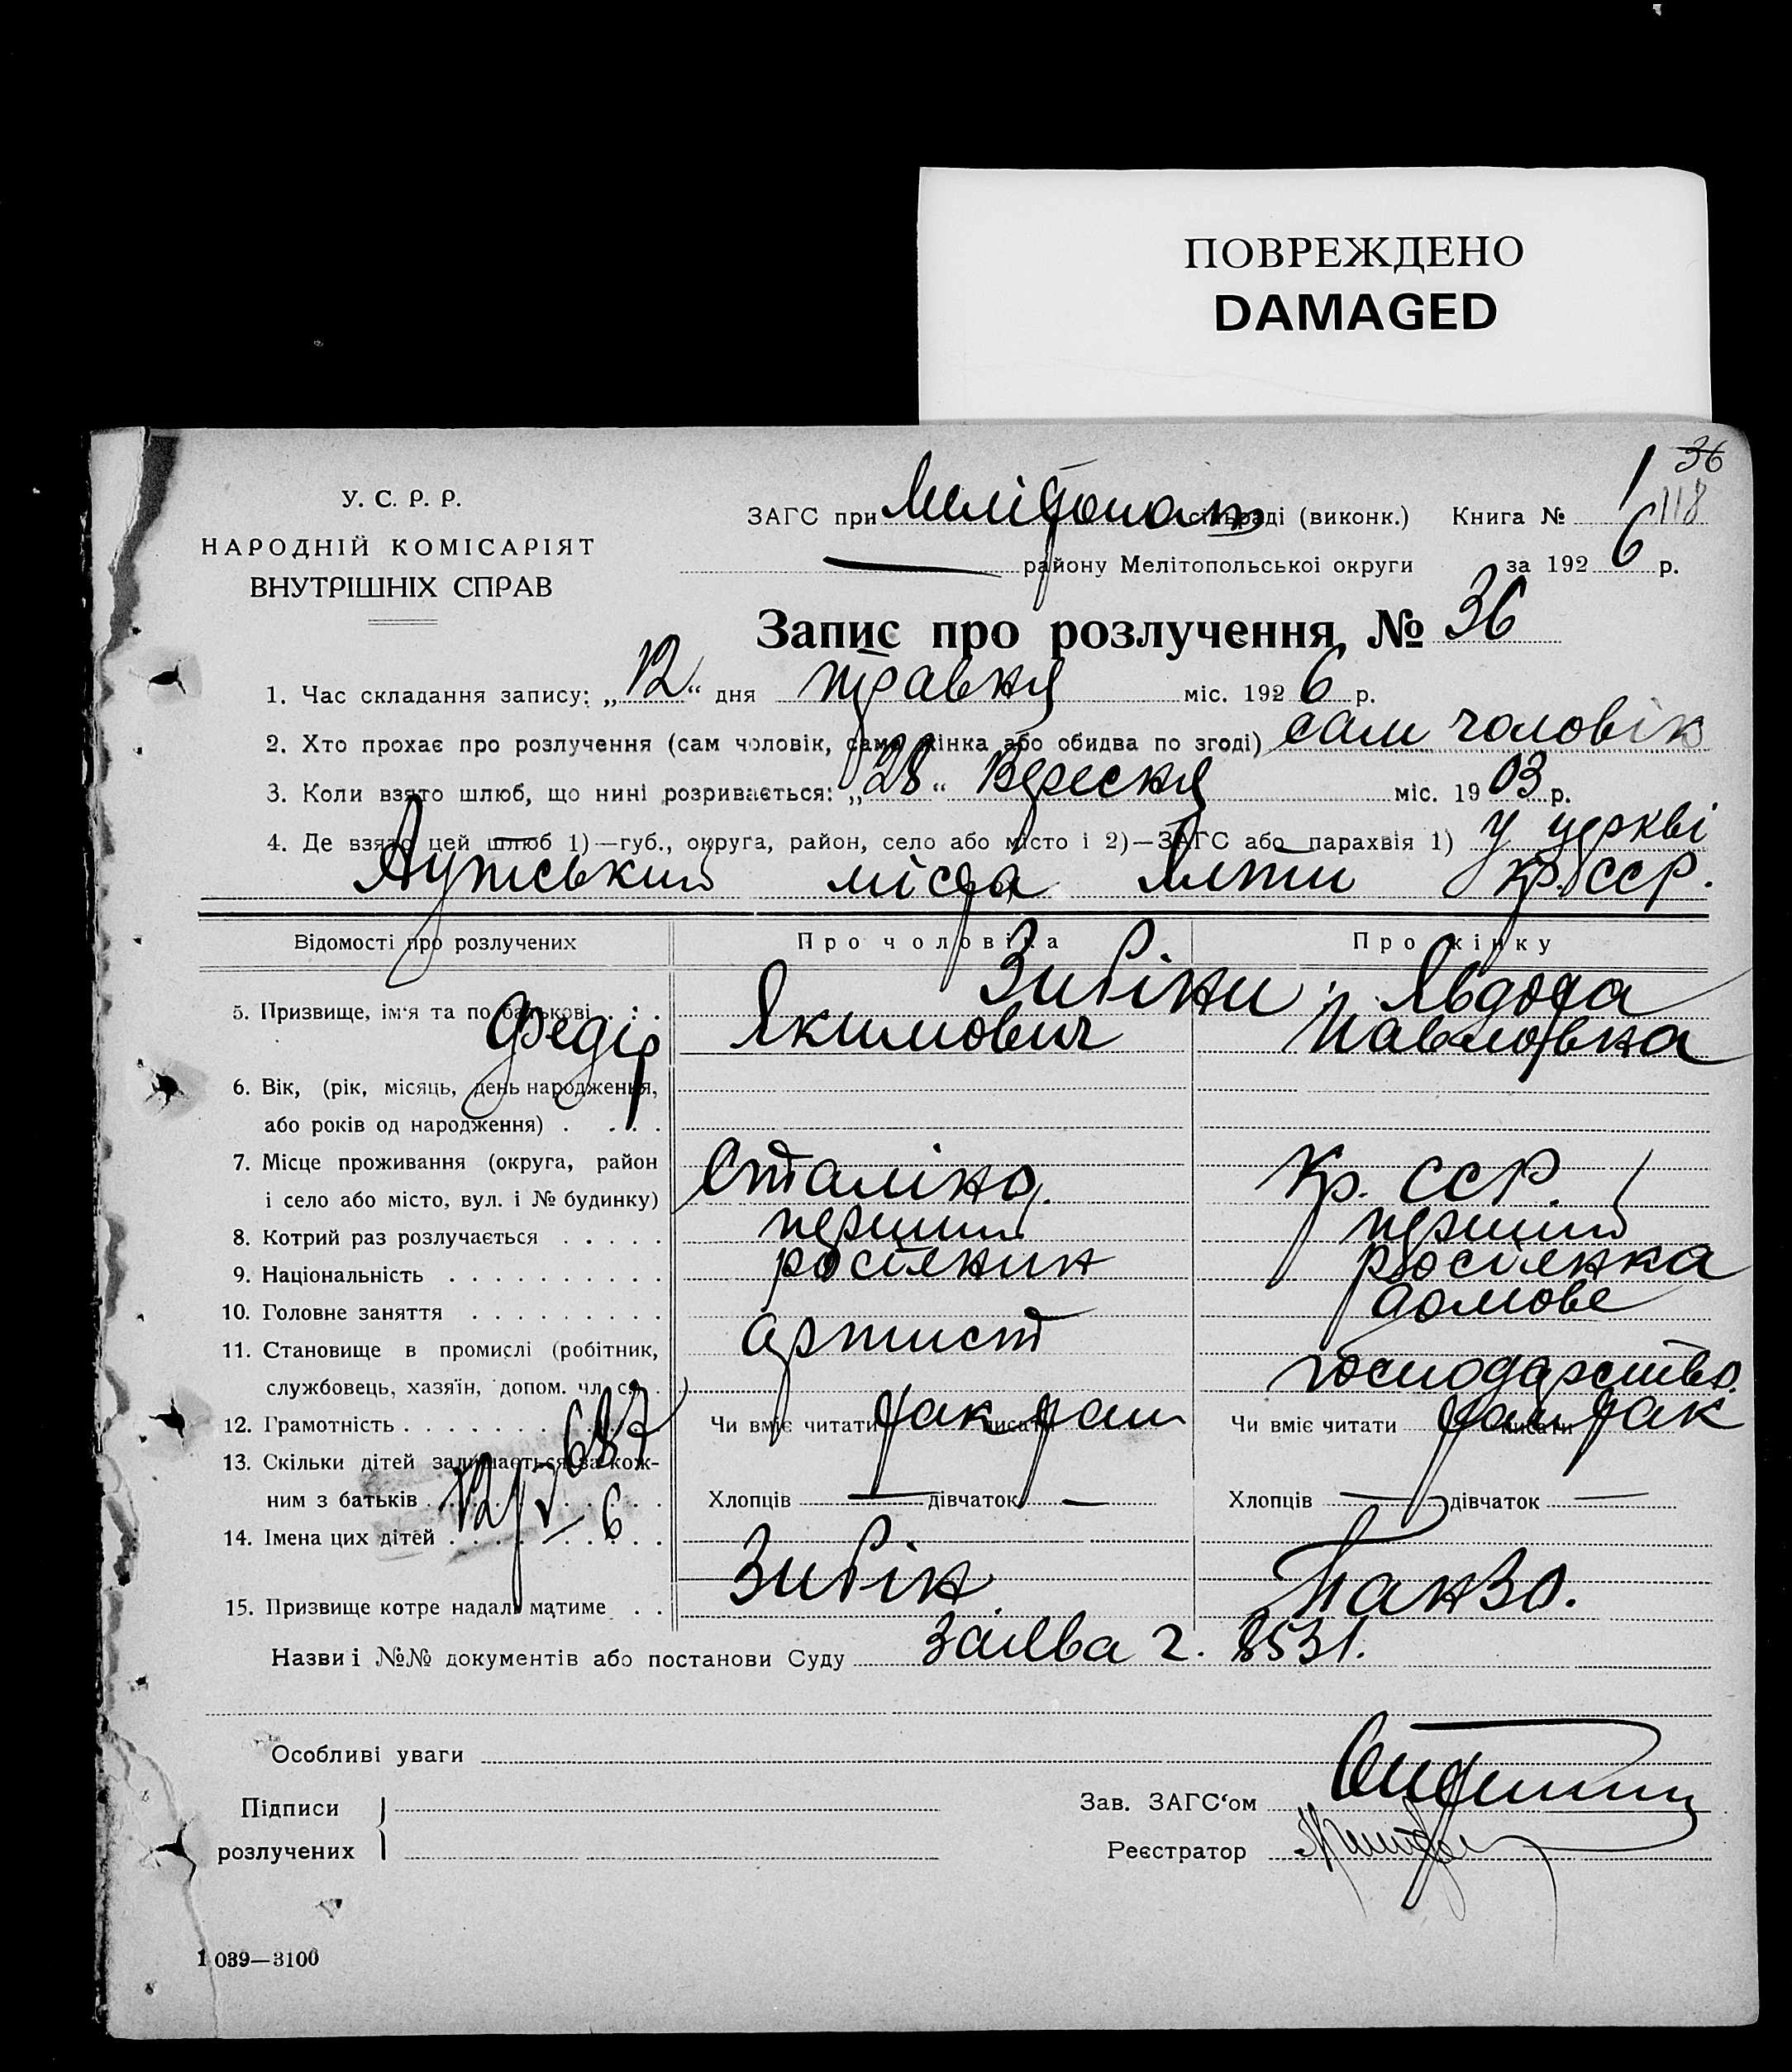 ПОВРЕЖДЕНО
DAMAGED
36
118
У. С. Р. Р.
НАРОДНІЙ КОМІСАРІЯТ
ВНУТРІШНІХ СПРАВ
ЗАГС при сільраді (виконк.) Книга № 1
району Мелітопольської округи за 1926 р.
Запис про розлучення № 36
1. Час складання запису: „12“ дня травня міс. 1926 р.
2. Хто прохає про розлучення (сам чоловік, сама жінка або обидва по згоді) сам чоловік
3. Коли взято шлюб, що нині розривається: „28“ Вересня міс. 1903 р.
4. Де взято цей шлюб 1)—губ., округа, район, село або місто і 2)—ЗАГС або парахвія 1) у церкві
Аутський міста Ялти Кр. ССР.
Відомості про розлучених Про чоловіка Про жінку
5. Призвище, ім'я та по батькові Зибіни: Явдоха
Федір Якимович Павловна
6. Вік, (рік, місяць, день народження,
або років од народження)
7. Місце проживання (округа, район
і село або місто, вул. і № будинку) Сталіно. Кр. ССР.
8. Котрий раз розлучається перший перший
9. Національність росіянин росіянка
10. Головне заняття артист домове
11. Становище в промислі (робітник,
службовець, хазяїн, допом. чл. сем. господарство.
12. Грамотність Чи вміє читати так писати так Чи вміє читати так писати так
687
13. Скільки дітей залишається за кож-
ним з батьків Хлопців — дівчаток — Хлопців — дівчаток —
12/V—6
14. Імена цих дітей
15. Призвище котре надалі матиме Зибін. Танзо.
Назви і №№ документів або постанови Суду заява ч. 8531.
Особливі уваги
Підписи
розлучених
Зав. ЗАГС'ом
Реєстратор
1 039—3100